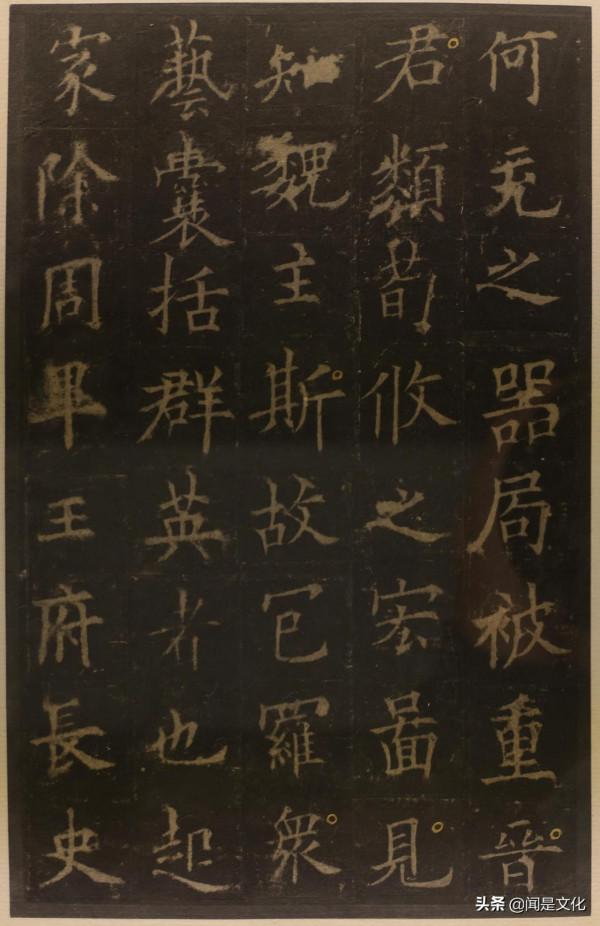 何充之器局被重晉
君類荀攸之宏啚見
知魏主斯故包羅衆
藝囊括群英者也起
家除周卑王府長史
头条 @闻是文化